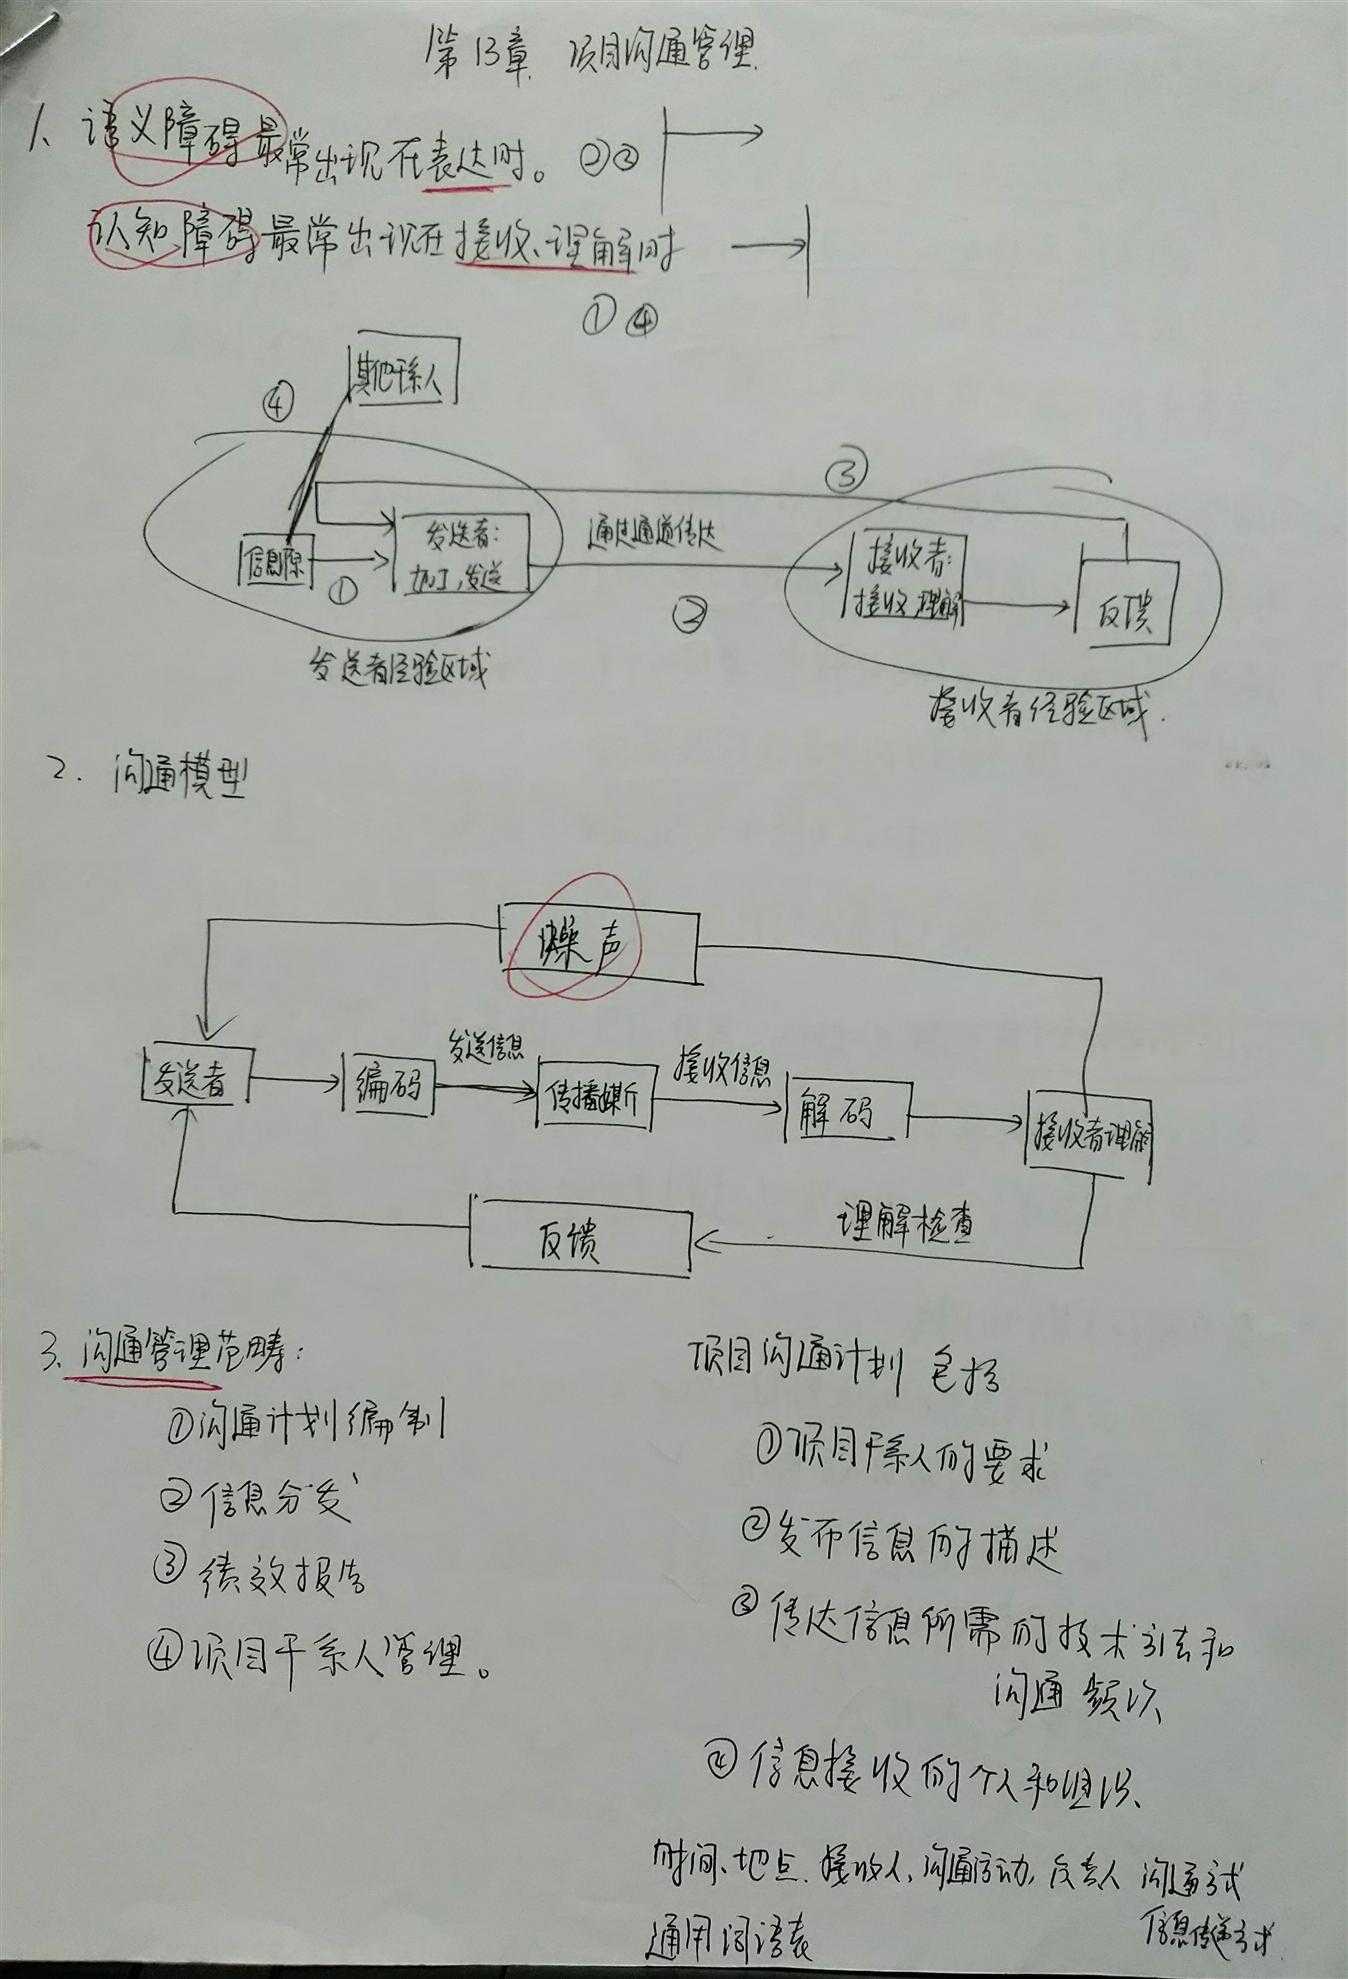 第13章 项目沟通管理
1、语义障碍最常出现在表达时。②③
认知障碍最常出现在接收、理解时
①④
其他干系人
④
③
信息源
①
发送者：
加工，发送
通过通道传达
②
接收者：
接收 理解
反馈
发送者经验区域
接收者经验区域.
2. 沟通模型
噪声
发送者
编码
发送信息
传播媒介
接收信息
解码
接收者理解
反馈
理解检查
3、沟通管理范畴：
①沟通计划编制
②信息分发
③绩效报告
④项目干系人管理。
项目沟通计划 包括
①项目干系人的要求
②发布信息的描述
③传达信息所需的技术方法和
沟通 频次
④信息接收的个人和组织、
时间、地点、接收人、沟通活动, 负责人 沟通方式
通用词语表
信息传递方式